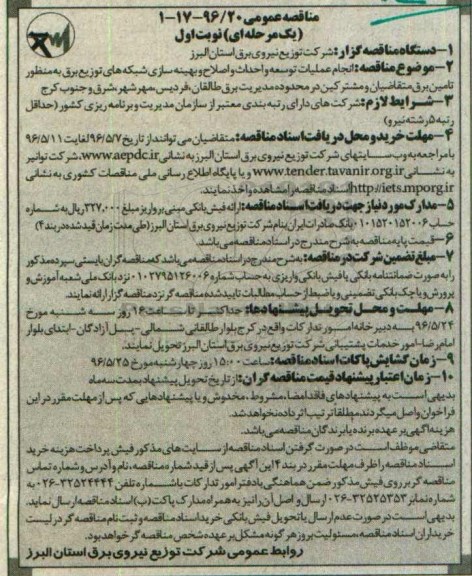 مناقصه عمومی ۹۶/۲۰-۱۷-۱
(یک مرحله ای) نوبت اول
۱-دستگاه مناقصه گزار: شرکت توزیع نیروی برق استان البرز
۲-موضوع مناقصه: انجام عملیات توسعه و احداث و اصلاح و بهینه سازی شبکه های توزیع برق به منظور
تامین برق متقاضیان و مشترکین در محدوده مدیریت برق طالقان، فردیس، مهرشهر، شرق و جنوب کرج
۳-شرایط لازم: شرکت های دارای رتبه بندی معتبر از سازمان مدیریت و برنامه ریزی کشور (حداقل
رتبه ۵ رشته نیرو)
۴-مهلت خرید و محل دریافت اسناد مناقصه: متقاضیان می توانند از تاریخ ۹۶/۵/۷ لغایت ۹۶/۵/۱۱
با مراجعه به وب سایتهای شرکت توزیع نیروی برق استان البرز به نشانی www.aepdc.ir، شرکت توانیر
به نشانی www.tender.tavanir.org.ir و یا پایگاه اطلاع رسانی ملی مناقصات کشوری به نشانی
http://iets.mporg.ir اسناد مناقصه را مشاهده و اخذ نمایند.
۵-مدارک مورد نیاز جهت دریافت اسناد مناقصه: ارائه فیش بانکی مبنی بر واریز مبلغ ۳۲۷،۰۰۰ ریال به شماره
حساب ۰۱۰۱۵۲۰۱۵۲۰۰۶ بانک صادرات ایران بنام شرکت توزیع نیروی برق استان البرز (طی مدت زمان قید شده در بند ۴)
۶-قیمت پایه مناقصه به شرح مندرج در اسناد مناقصه می باشد.
۷-مبلغ تضمین شرکت در مناقصه: به شرح مندرج در اسناد مناقصه می باشد که مناقصه گران بایستی سپرده مذکور
را به صورت ضمانتنامه بانکی یا فیش بانکی واریزی به حساب شماره ۰۱۰۲۷۹۵۱۲۶۰۰۶ نزد بانک ملی شعبه آموزش و
پرورش و یا چک بانکی تضمینی و یا ضبط از حساب مطالبات تایید شده مناقصه گر نزد مناقصه گزار ارائه نمایند.
۸-مهلت و محل تحویل پیشنهادها: حداکثر تا ساعت ۱۴ روز سه شنبه مورخ
۹۶/۵/۲۴ به دبیرخانه امور تدارکات واقع در کرج بلوار طالقانی شمالی-پل آزادگان-ابتدای بلوار
امام رضا-امور خدمات پشتیبانی شرکت توزیع نیروی برق استان البرز تحویل نمایند.
۹-زمان گشایش پاکات اسناد مناقصه: ساعت ۱۵:۰۰ روز چهارشنبه مورخ ۹۶/۵/۲۵
۱۰-زمان اعتبار پیشنهاد قیمت مناقصه گران: از تاریخ تحویل پیشنهاد بمدت سه ماه
بدیهی است به پیشنهادهای فاقد امضا، مشروط، مخدوش و یا پیشنهادهایی که پس از مهلت مقرر در این
فراخوان واصل میگردند مطلقا ترتیب اثر داده نخواهد شد.
هزینه آگهی بر عهده برنده یا برندگان مناقصه می باشد.
متقاضی موظف است در صورت گرفتن اسناد مناقصه از سایت های مذکور فیش پرداخت هزینه خرید
اسناد مناقصه را ظرف مهلت مقرر در بند ۴ این آگهی پس از قید شماره مناقصه، نام و آدرس و شماره تماس
مناقصه گر بر روی فیش مذکور ضمن هماهنگی با دفتر امور تدارکات با شماره تلفن ۳۲۵۲۴۴۴۴-۰۲۶ به
شماره نمابر ۳۲۵۲۵۳۵۳-۰۲۶ ارسال و اصل آن را نیز به همراه مدارک پاکت (ب) اسناد مناقصه ارسال نماید.
بدیهی است در صورت عدم ارسال یا تحویل فیش بانکی خرید اسناد مناقصه و ثبت نام مناقصه گر در لیست
خریداران اسناد مناقصه، مسئولیت بروز هر گونه مشکل بر عهده شخص مناقصه گر خواهد بود.
روابط عمومی شرکت توزیع نیروی برق استان البرز